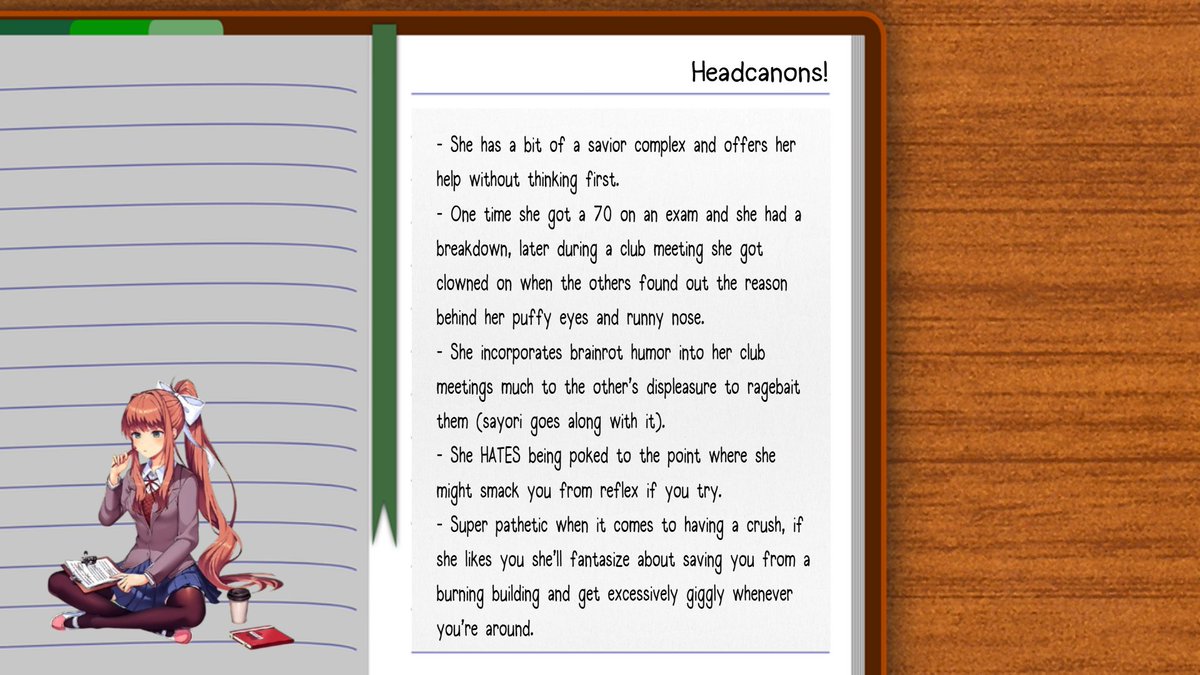 Headcanons!
- She has a bit of a savior complex and offers her
help without thinking first.
- One time she got a 70 on an exam and she had a
breakdown, later during a club meeting she got
clowned on when the others found out the reason
behind her puffy eyes and runny nose.
- She incorporates brainrot humor into her club
meetings much to the other's displeasure to ragebait
them (sayori goes along with it).
- She HATES being poked to the point where she
might smack you from reflex if you try.
- Super pathetic when it comes to having a crush, if
she likes you she'll fantasize about saving you from a
burning building and get excessively giggly whenever
you're around.